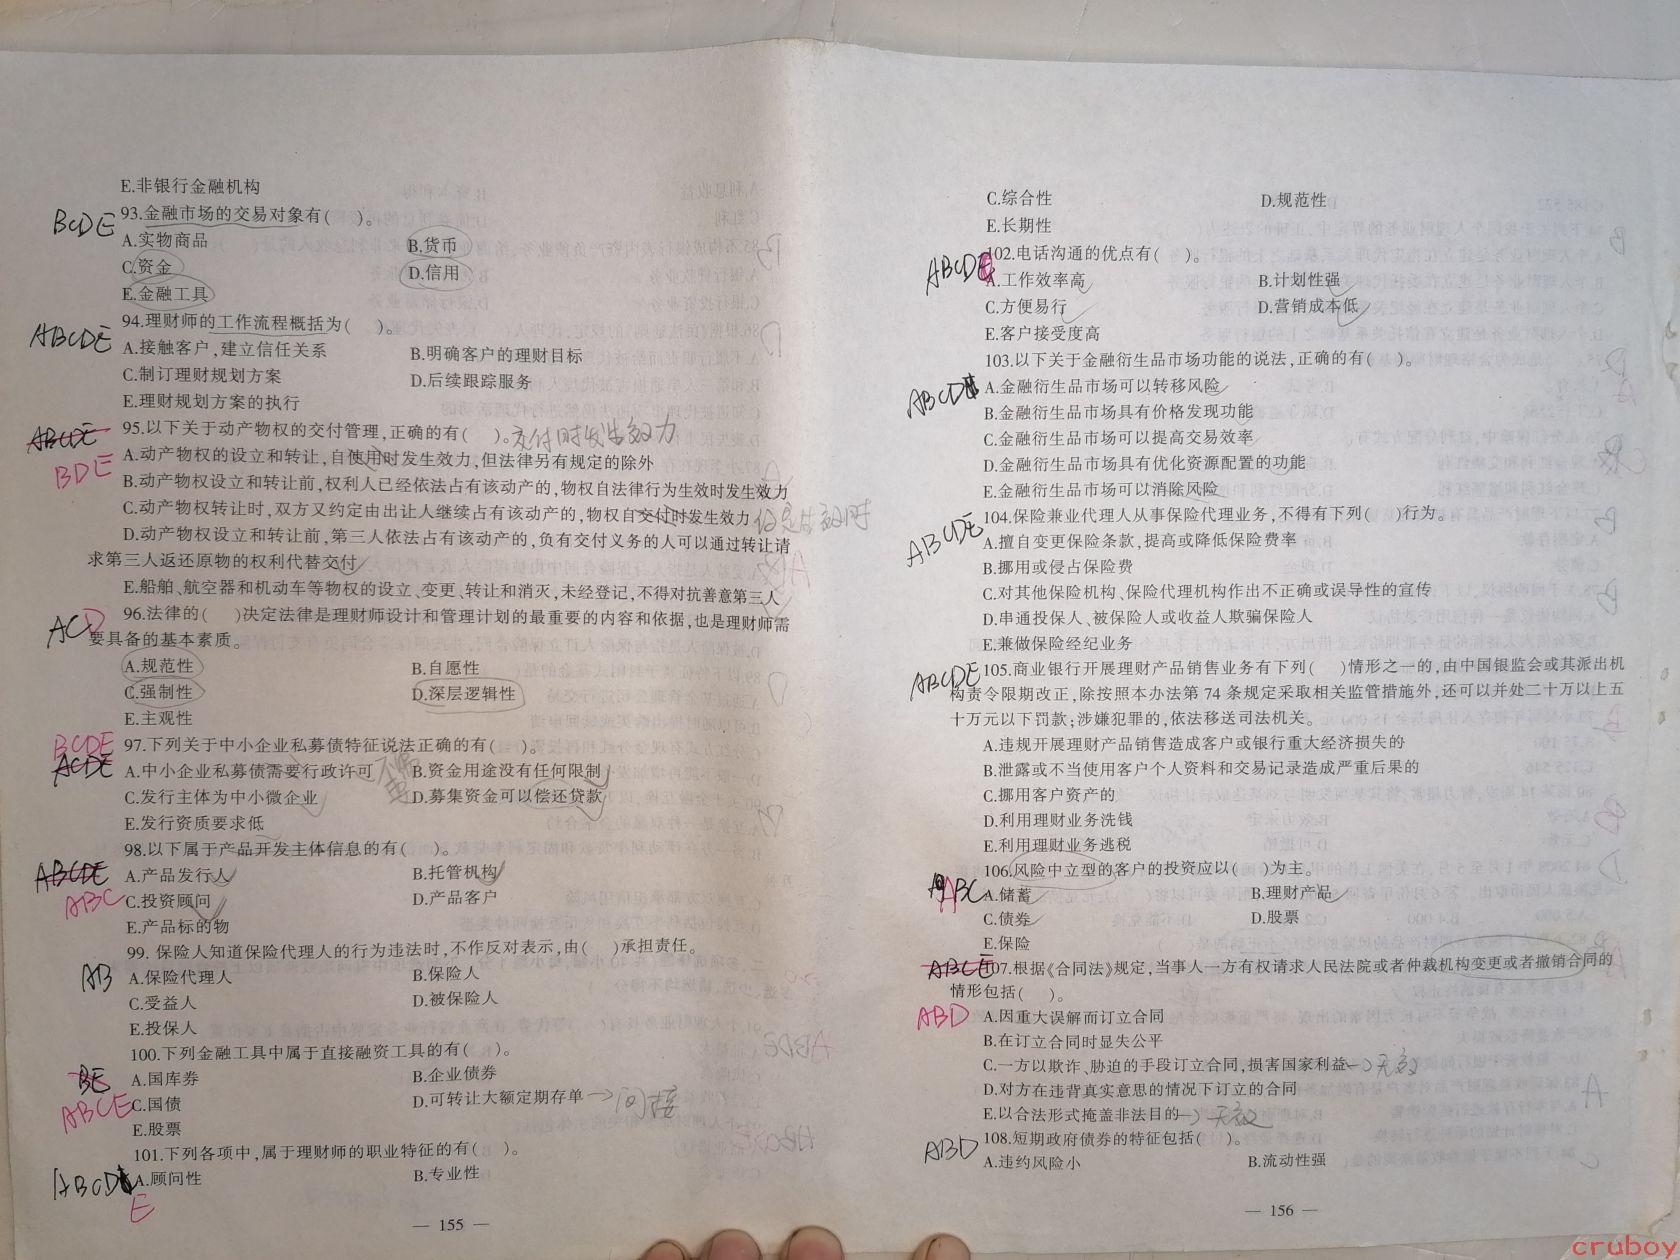 E.非银行金融机构
BCDE 93.金融市场的交易对象有(　　)。
A.实物商品　B.货币
C.资金　D.信用
E.金融工具
ABCDE 94.理财师的工作流程概括为(　　)。
A.接触客户,建立信任关系　B.明确客户的理财目标
C.制订理财规划方案　D.后续跟踪服务
E.理财规划方案的执行
ABCDE 95.以下关于动产物权的交付管理,正确的有(　　)。交付时发生效力
BDE A.动产物权的设立和转让,自使用时发生效力,但法律另有规定的除外
B.动产物权设立和转让前,权利人已经依法占有该动产的,物权自法律行为生效时发生效力
C.动产物权转让时,双方又约定由出让人继续占有该动产的,物权自交付时发生效力
D.动产物权设立和转让前,第三人依法占有该动产的,负有交付义务的人可以通过转让请
求第三人返还原物的权利代替交付
E.船舶、航空器和机动车等物权的设立、变更、转让和消灭,未经登记,不得对抗善意第三人
ACD 96.法律的(　　)决定法律是理财师设计和管理计划的最重要的内容和依据,也是理财师需
要具备的基本素质。
A.规范性　B.自愿性
C.强制性　D.深层逻辑性
E.主观性
BCDE 97.下列关于中小企业私募债特征说法正确的有(　　)。
ACDE A.中小企业私募债需要行政许可 不需要　B.资金用途没有任何限制
C.发行主体为中小微企业　D.募集资金可以偿还贷款
E.发行资质要求低
98.以下属于产品开发主体信息的有(　　)。
ABCDE A.产品发行人　B.托管机构
ABC C.投资顾问　D.产品客户
E.产品标的物
99. 保险人知道保险代理人的行为违法时,不作反对表示,由(　　)承担责任。
AB A.保险代理人　B.保险人
C.受益人　D.被保险人
E.投保人
100.下列金融工具中属于直接融资工具的有(　　)。
BE A.国库券　B.企业债券
ABCE C.国债　D.可转让大额定期存单→间接
E.股票
101.下列各项中,属于理财师的职业特征的有(　　)。
ABCD A.顾问性　B.专业性
E
— 155 —
C.综合性　D.规范性
E.长期性
102.电话沟通的优点有(　　)。
ABCD A.工作效率高　B.计划性强
C.方便易行　D.营销成本低
E.客户接受度高
103.以下关于金融衍生品市场功能的说法,正确的有(　　)。
ABCD A.金融衍生品市场可以转移风险
B.金融衍生品市场具有价格发现功能
C.金融衍生品市场可以提高交易效率
D.金融衍生品市场具有优化资源配置的功能
E.金融衍生品市场可以消除风险
104.保险兼业代理人从事保险代理业务,不得有下列(　　)行为。
ABCDE A.擅自变更保险条款,提高或降低保险费率
B.挪用或侵占保险费
C.对其他保险机构、保险代理机构作出不正确或误导性的宣传
D.串通投保人、被保险人或收益人欺骗保险人
E.兼做保险经纪业务
ABCDE 105.商业银行开展理财产品销售业务有下列(　　)情形之一的,由中国银监会或其派出机
构责令限期改正,除按照本办法第 74 条规定采取相关监管措施外,还可以并处二十万以上五
十万元以下罚款;涉嫌犯罪的,依法移送司法机关。
A.违规开展理财产品销售造成客户或银行重大经济损失的
B.泄露或不当使用客户个人资料和交易记录造成严重后果的
C.挪用客户资产的
D.利用理财业务洗钱
E.利用理财业务逃税
106.风险中立型的客户的投资应以(　　)为主。
ABC A.储蓄　B.理财产品
C.债券　D.股票
E.保险
ABCE 107.根据《合同法》规定,当事人一方有权请求人民法院或者仲裁机构变更或者撤销合同的
情形包括(　　)。
ABD A.因重大误解而订立合同
B.在订立合同时显失公平
C.一方以欺诈、胁迫的手段订立合同,损害国家利益→无效
D.对方在违背真实意思的情况下订立的合同
E.以合法形式掩盖非法目的→无效
ABD 108.短期政府债券的特征包括(　　)。
A.违约风险小　B.流动性强
— 156 —
cruboy